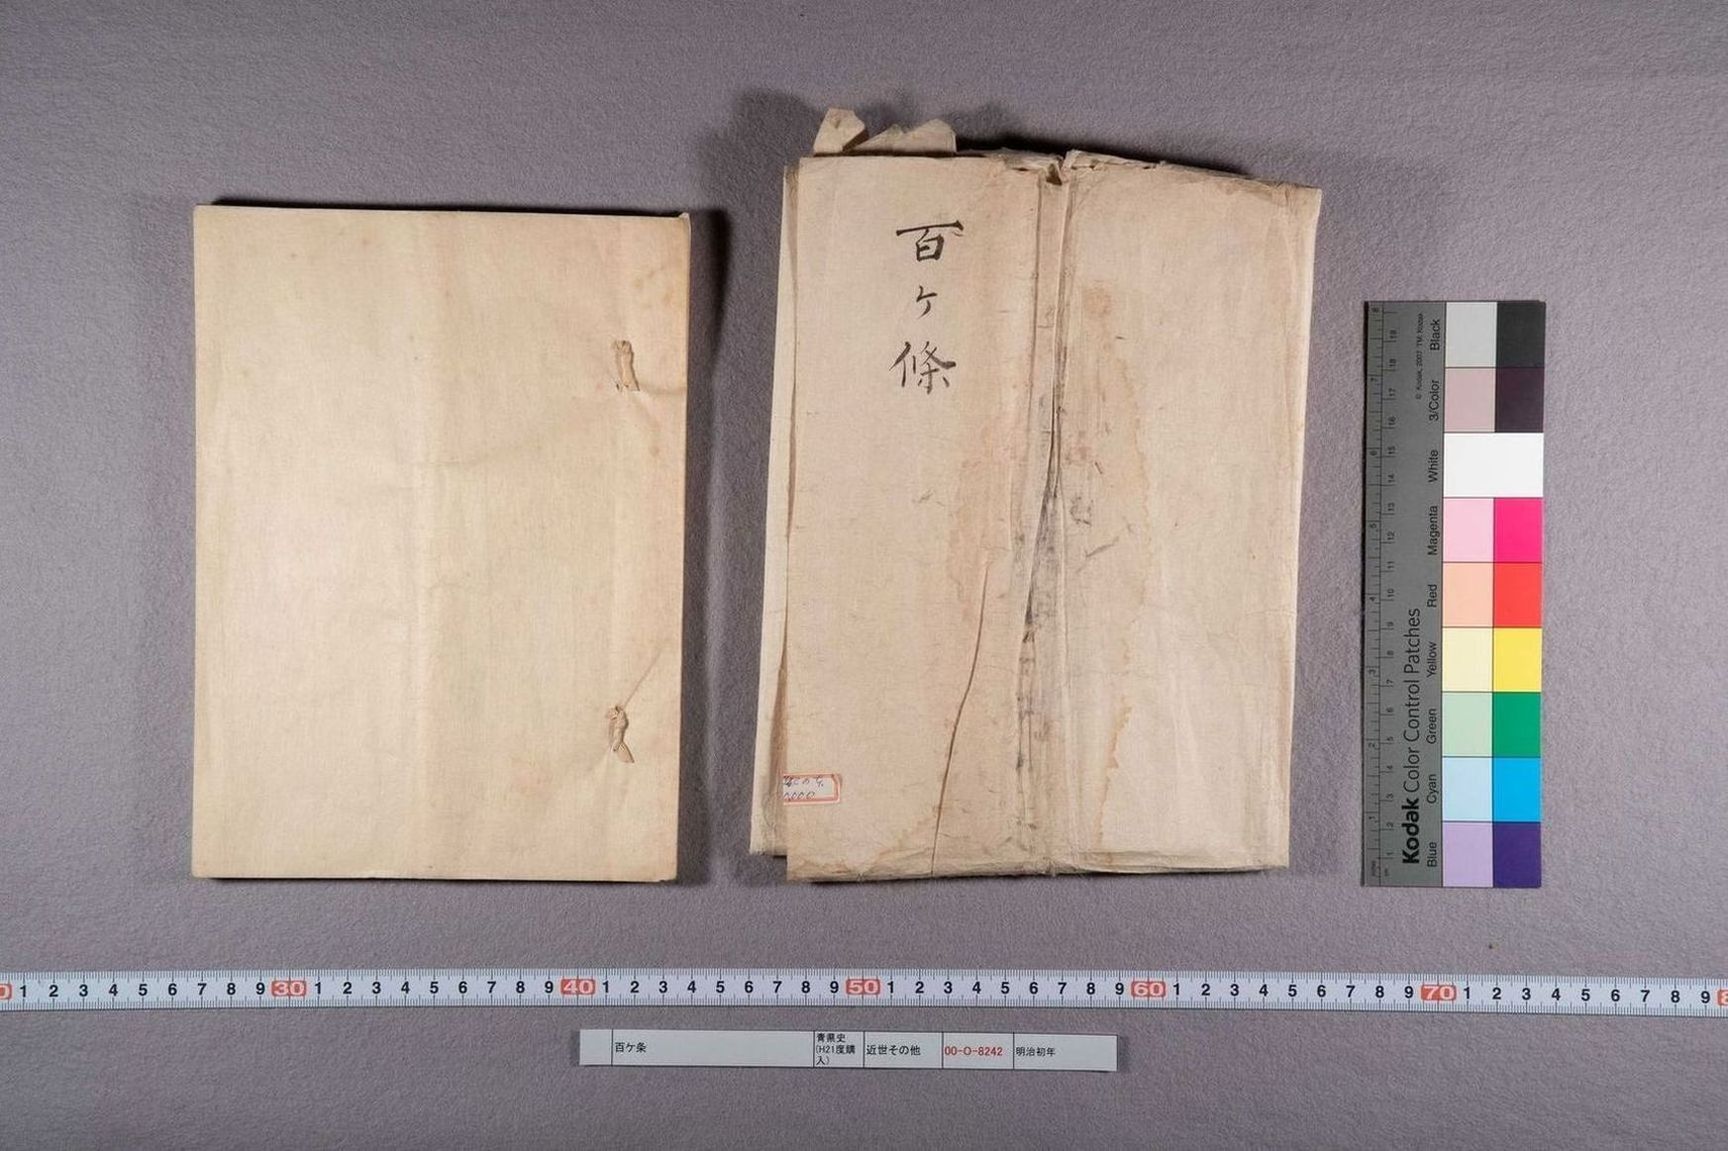 百ケ條
Kodak Color Control Patches
© Kodak, 2007 TM: Kodak
Blue Cyan Green Yellow Red Magenta White 3/Color Black
1 2 3 4 5 6 7 8 9 30 1 2 3 4 5 6 7 8 9 40 1 2 3 4 5 6 7 8 9 50 1 2 3 4 5 6 7 8 9 60 1 2 3 4 5 6 7 8 9 70 1 2 3 4 5 6 7 8 9
百ケ条
青県史
(H21度購
入)
近世その他
00-O-8242
明治初年